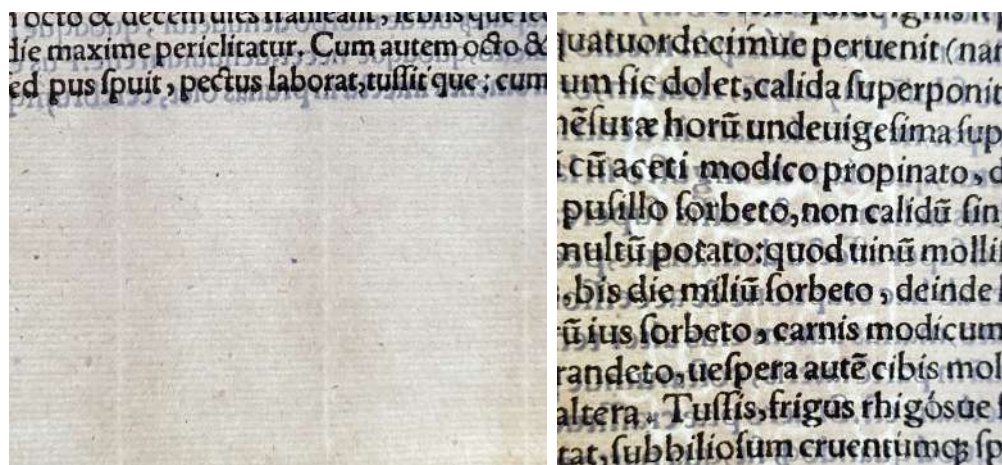 octo & decem dies transeant, febris que
die maxime periclitatur. Cum autem octo &
ed pus ſpuit, pectus laborat, tuſſit que: cum
quatuordecimue peruenit (nam
um ſic dolet, calida ſuperponit
nēſuræ horū undeuigeſima ſup
i cū aceti modico propinato, d
puſillo ſorbeto, non calidū ſin
multū potato: quod uinū molli
, bis die miliū ſorbeto, deinde
ū ius ſorbeto, carnis modicum
randeto, ueſpera autē cibis mol
altera. Tuſſis, frigus rhigósue
tat, ſubbilioſum cruentumqꝫ ſp